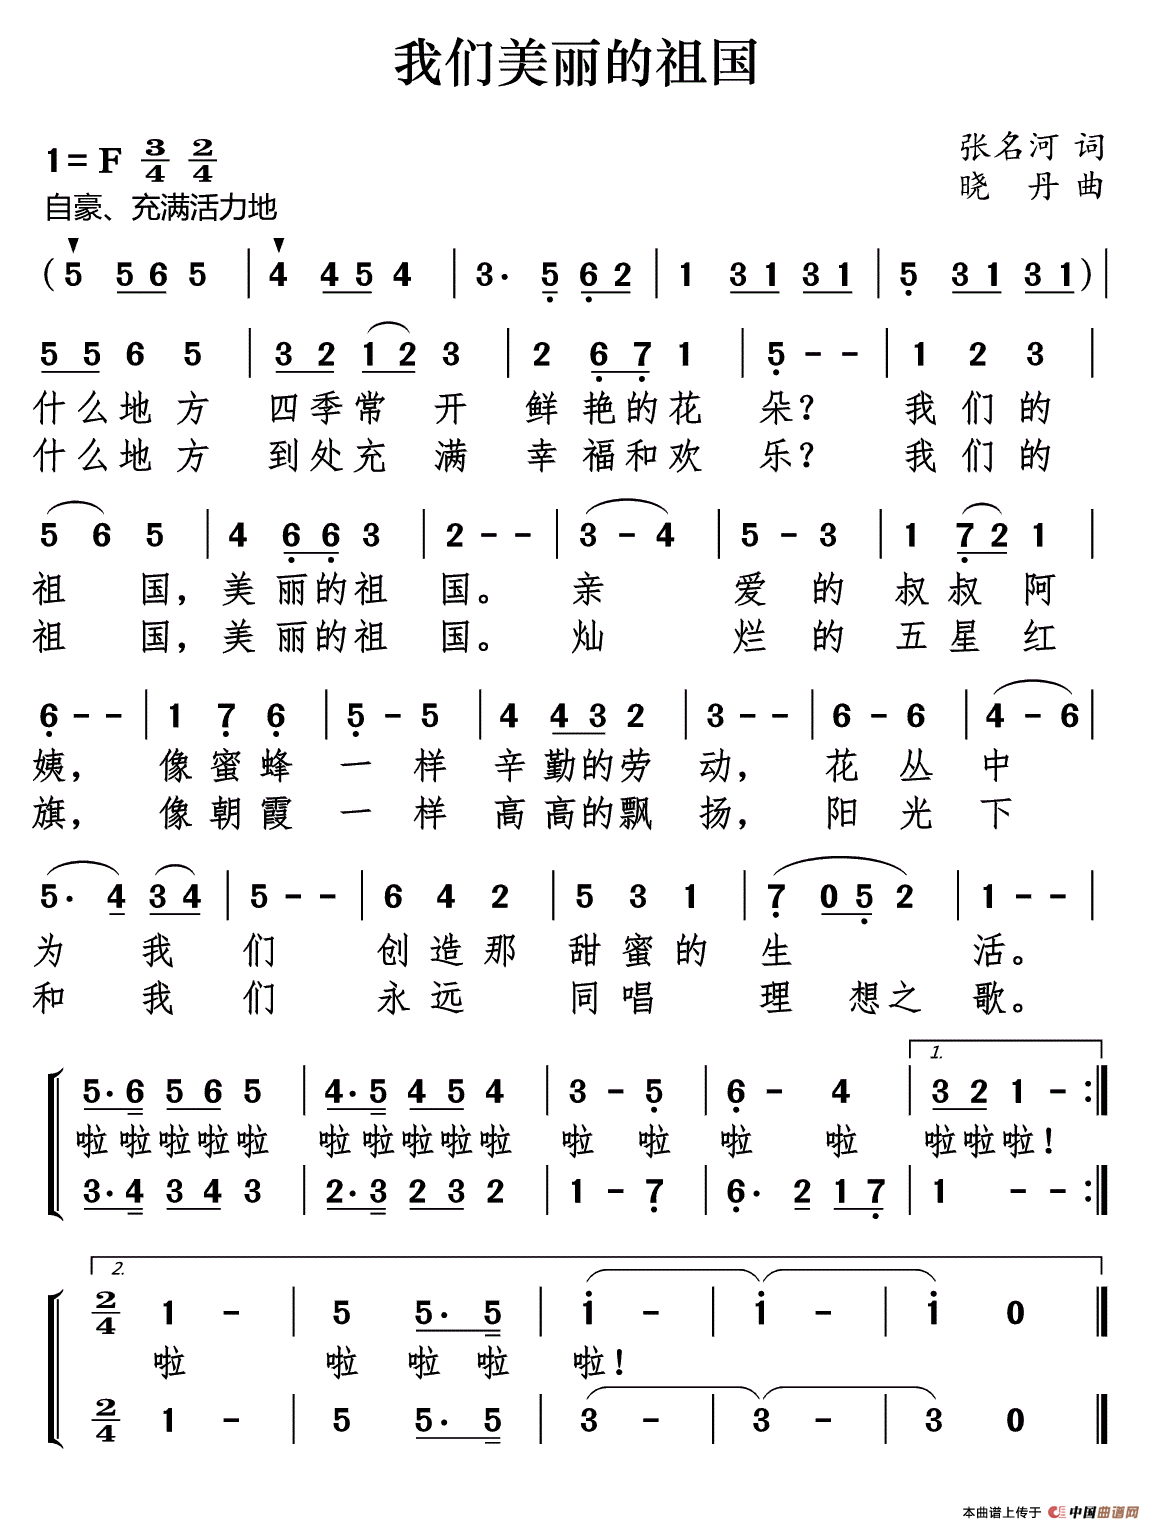 我们美丽的祖国
1= F 3/4 2/4
张名河 词
自豪、充满活力地
晓 丹 曲
( 5 5 6 5 | 4 4 5 4 | 3· 5 6 2 | 1 3 1 3 1 | 5 3 1 3 1 ) |
5 5 6 5 | 3 2 1 2 3 | 2 6 7 1 | 5 - - | 1 2 3 |
什么地方 四季常 开 鲜艳的花 朵? 我们的
什么地方 到处充 满 幸福和欢 乐? 我们的
5 6 5 | 4 6 6 3 | 2 - - | 3 - 4 | 5 - 3 | 1 7 2 1 |
祖 国, 美丽的祖 国。 亲 爱的 叔叔阿
祖 国, 美丽的祖 国。 灿 烂的 五星红
6 - - | 1 7 6 | 5 - 5 | 4 4 3 2 | 3 - - | 6 - 6 | 4 - 6 |
姨, 像蜜蜂 一样 辛勤的劳 动, 花丛 中
旗, 像朝霞 一样 高高的飘 扬, 阳光 下
5· 4 3 4 | 5 - - | 6 4 2 | 5 3 1 | 7 0 5 2 | 1 - - |
为 我 们 创造那 甜蜜的 生 活。
和 我 们 永远 同唱 理 想之 歌。
1.
5· 6 5 6 5 | 4· 5 4 5 4 | 3 - 5 | 6 - 4 | 3 2 1 - :|
啦啦啦啦啦 啦啦啦啦啦 啦 啦 啦 啦 啦啦啦!
3· 4 3 4 3 | 2· 3 2 3 2 | 1 - 7 | 6· 2 1 7 | 1 - - :|
2.
2/4 1 - | 5 5· 5 | 1 - | 1 - | 1 0 |
啦 啦 啦 啦 啦!
2/4 1 - | 5 5· 5 | 3 - | 3 - | 3 0 |
本曲谱上传于 中国曲谱网